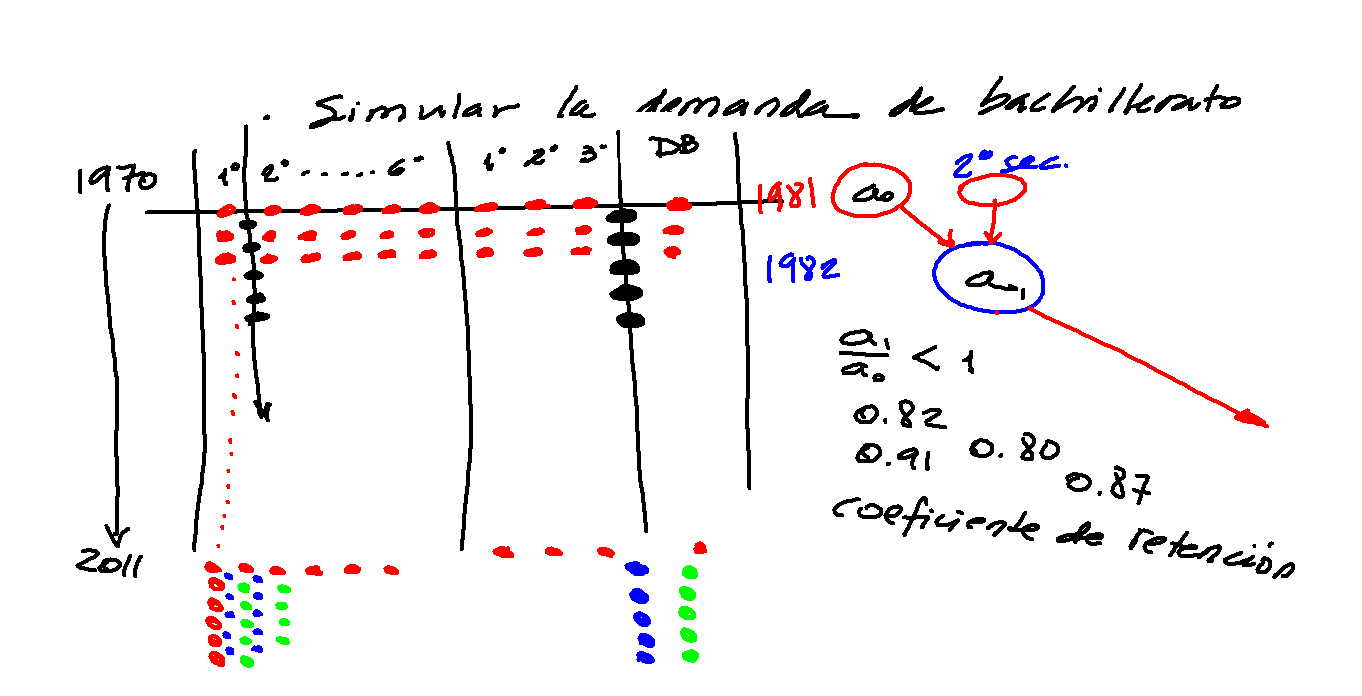 . Simular la demanda de bachillerato
1970 1° 2° ...... 6° 1° 2° 3° DB
1981 a₀ 2° sec.
1982 a₁
a₁/a₀ < 1
0.82
0.91 0.80
0.87
coeficiente de retención
2011